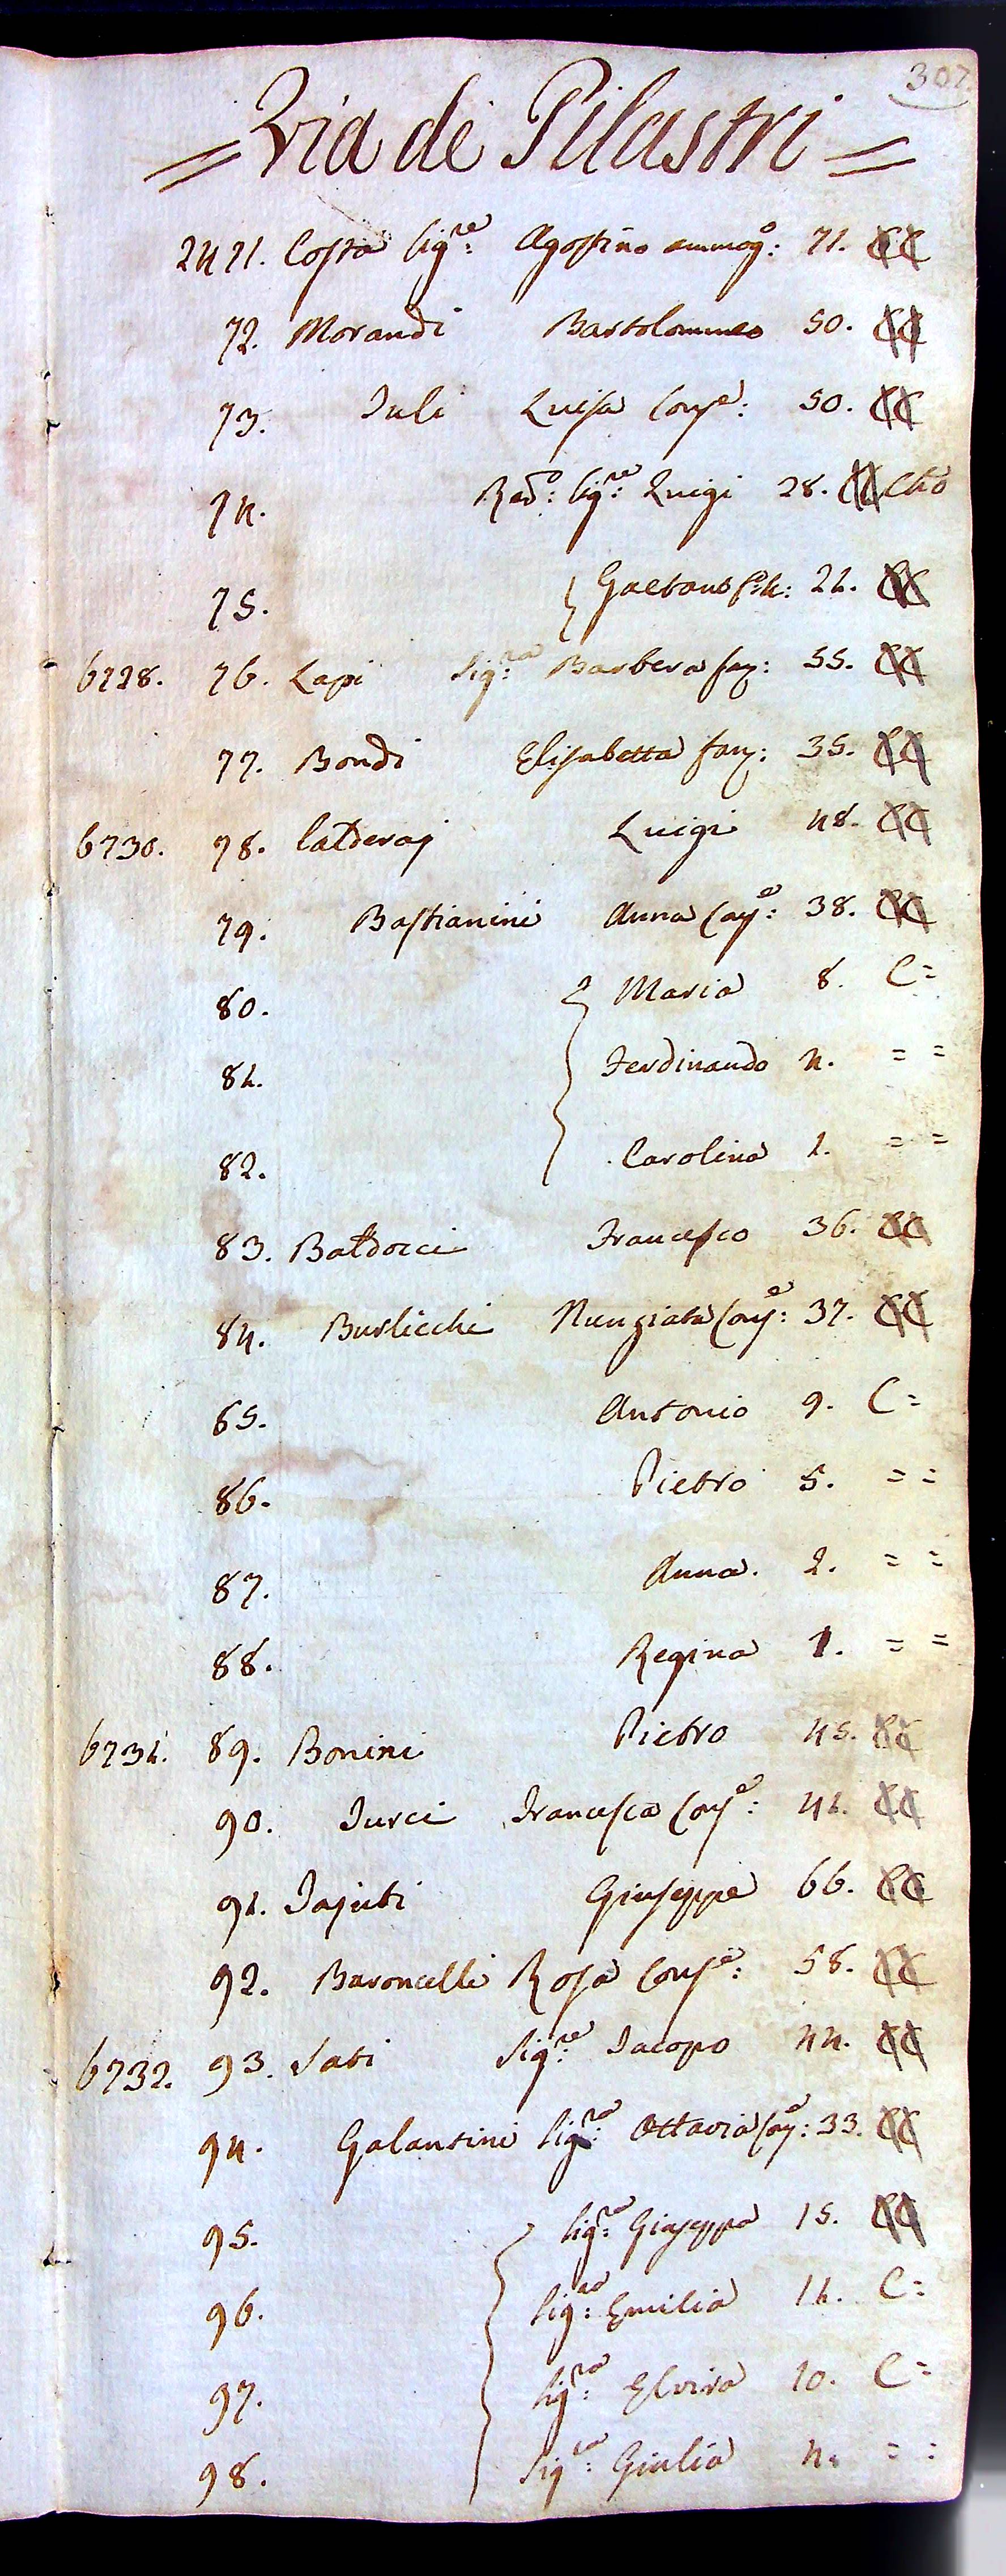 307.
= Via de Pilastri =
2471. Costa Sig.re Agostino ammog.o: 71. CC
72. Morandi Bartolommeo 50. CC
73. Iuli Luisa Cons.e: 50. CC
74. Red.o: Sig.re: Luigi 28. CC Cho
75. { Gaetano : 21. CC
6728. 76. Lapi Sig.ra: Barbera fan: 55. CC
77. Bondi Elisabetta fan: 35. CC
6730. 78. Calderaj Luigi 48. CC
79. Bastianini Anna Con.e: 38. CC
80. { Maria 8. C =
81. Ferdinando 4. = =
82. Carolina 1. = =
83. Baldocci Francesco 36. CC
84. Burlicchi Nunziata Con.e: 37. CC
85. Antonio 9. C =
86. Pietro 5. = =
87. Anna. 2. = =
88. Regina 1. = =
6731. 89. Bonini Pietro 45. CC
90. Turci Francesca Con.e: 41. CC
91. Giuseppe 66. CC
92. Baroncelli Rosa Cons.e: 58. CC
6732. 93. Sati Sig.re: Iacopo 44. CC
94. Galantini Sig.ra: Ottavia Con.e: 33. CC
95. { Sig.ra: Giuseppa 15. CC
96. Sig.ra: Emilia 11. C =
97. Sig.ra: Elvira 10. C =
98. Sig.ra: Giulia 4. = =